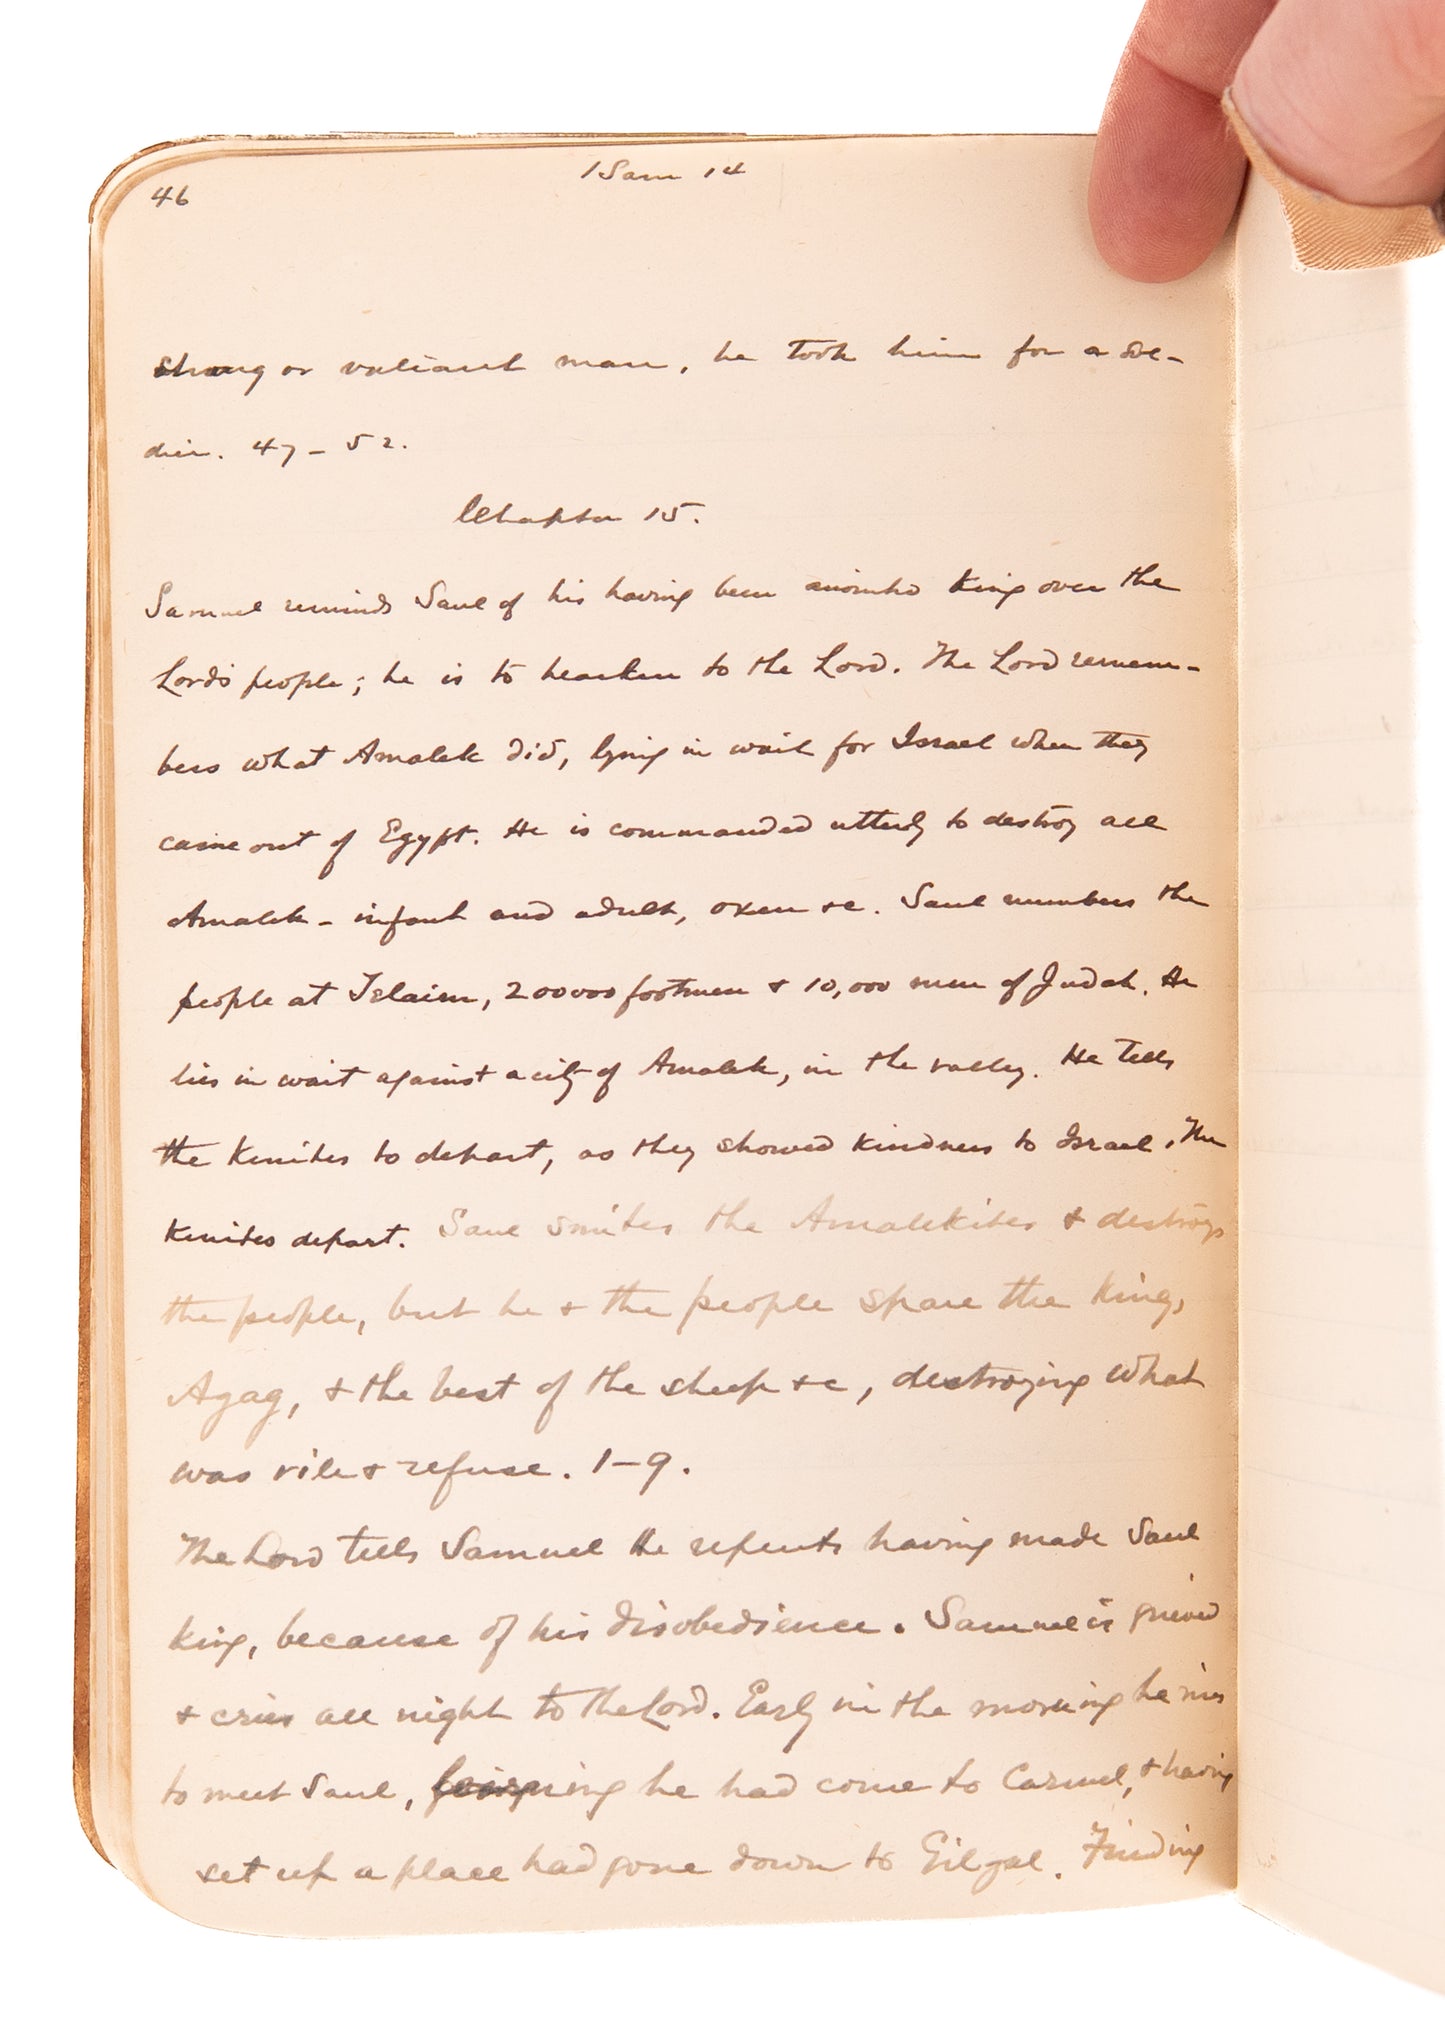 46
1 Sam 14
strong or valiant man, he took him for a sol-
dier. 47 - 52.
Chapter 15.
Samuel reminds Saul of his having been anointed King over the
Lord's people; he is to hearken to the Lord. The Lord remem-
bers what Amalek did, lying in wait for Israel when they
came out of Egypt. He is commanded utterly to destroy all
Amalek - infant and adult, oxen &c. Saul numbers the
people at Telaim, 200000 footmen & 10,000 men of Judah. He
lies in wait against a city of Amalek, in the valley. He tells
the Kenites to depart, as they showed kindness to Israel. The
Kenites depart. Saul smites the Amalekites & destroys
the people, but he & the people spare the King,
Agag, & the best of the sheep &c, destroying what
was vile & refuse. 1-9.
The Lord tells Samuel He repents having made Saul
king, because of his disobedience. Samuel is grieved
& cries all night to the Lord. Early in the morning he rises
to meet Saul, he had come to Carmel, & having
set up a place had gone down to Gilgal. Finding